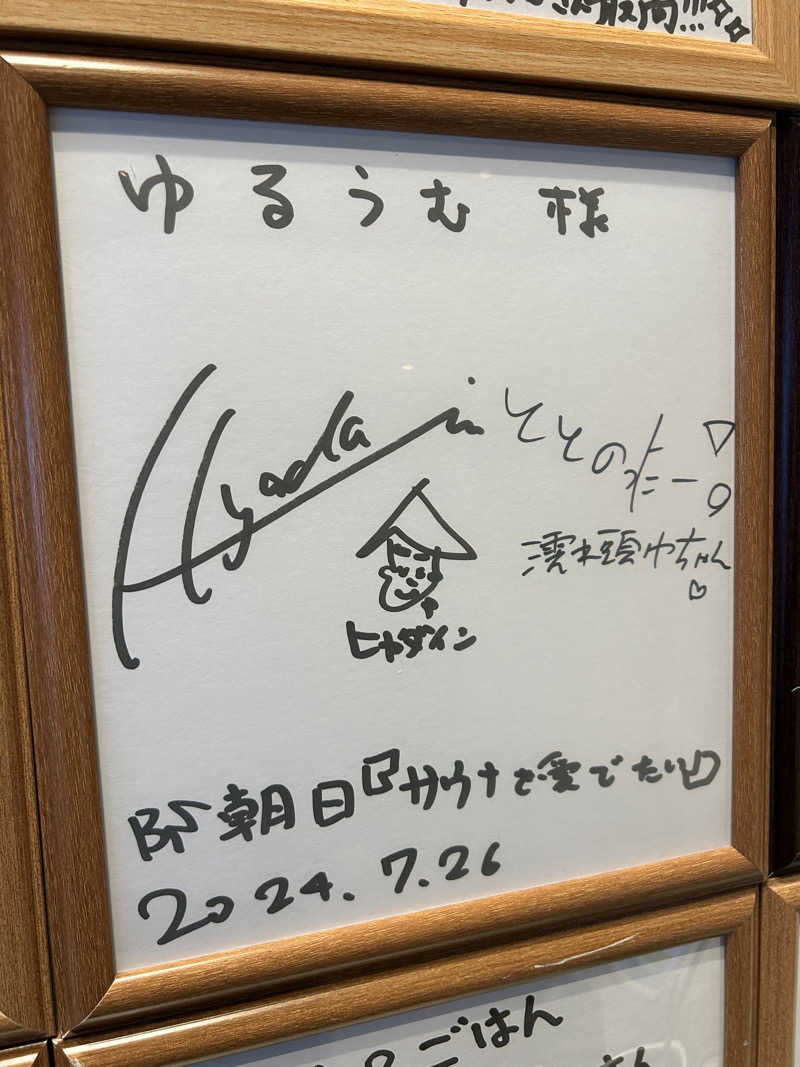 最高!!!
ゆるうむ 様
Hyadain
ととのたー!
濡れ頭ゆちゃん
ヒャダイン
BS朝日『サウナを愛でたい』
2024.7.26
ごはん